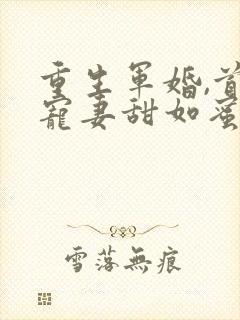 重生军婚,首
宠妻甜如蜜
雪落無痕